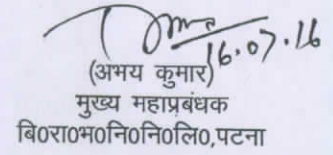 16.07.16
(अभय कुमार)
मुख्य महाप्रबंधक
बि0रा0भ0नि0नि0लि0,पटना